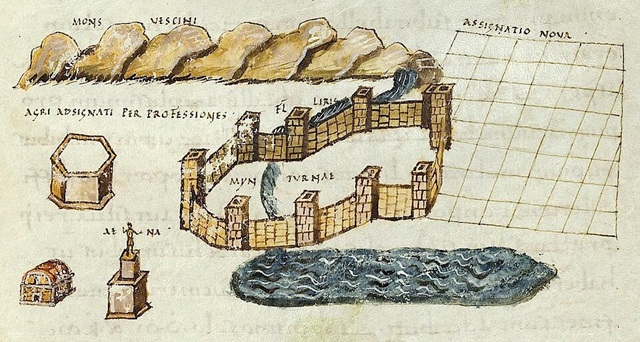 MONS VESCINI
ASSIGNATIO NOVA
AGRI ADSIGNATI PER PROFESSIONES
FL LIRIS
MYN TVRNAE
AE NA